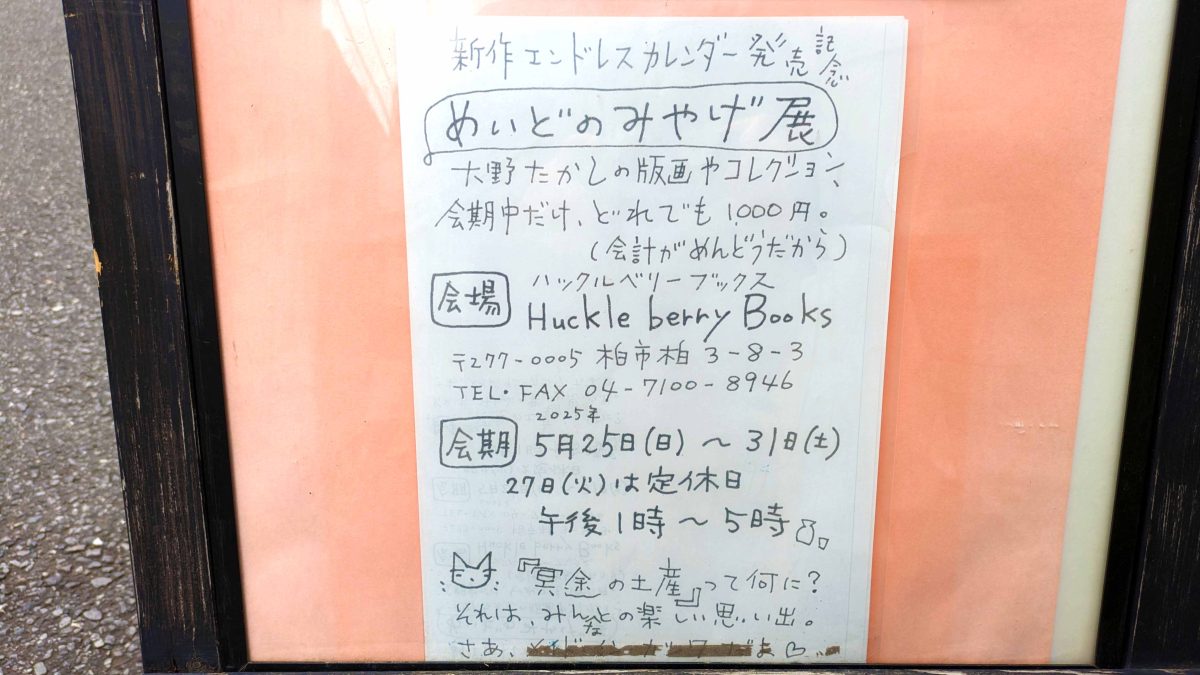 新作エンドレスカレンダー発売記念
めいどのみやげ展
大野たかしの版画やコレクション、
会期中だけ、どれでも1,000円。
(会計がめんどうだから)
ハックルベリーブックス
会場 Huckle berry Books
〒277-0005 柏市柏 3-8-3
TEL・FAX 04-7100-8946
2025年
会期 5月25日(日)〜31日(土)
27日(火)は定休日
午後1時〜5時
『冥途の土産』って何に?
それは、みんなとの楽しい思い出。
さあ、